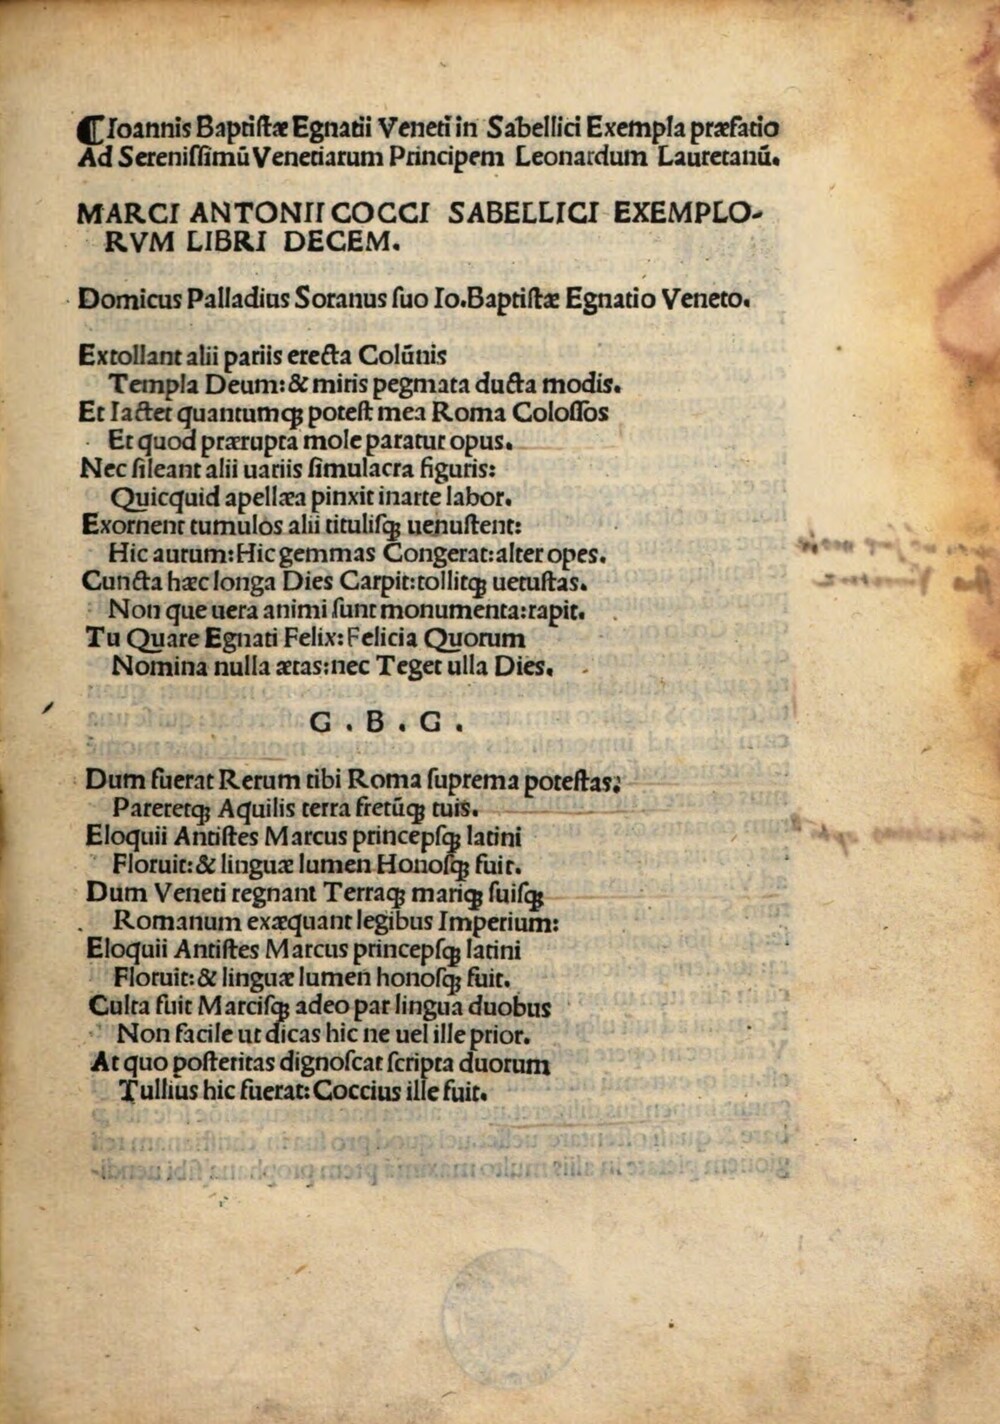 ¶Ioannis Baptiſtæ Egnatii Veneti in Sabellici Exempla præfatio
Ad Sereniſſimū Venetiarum Principem Leonardum Lauretanū.
MARCI ANTONII COCCI SABELLICI EXEMPLO-
RVM LIBRI DECEM.
Domicus Palladius Soranus ſuo Io.Baptiſtæ Egnatio Veneto.
Extollant alii pariis erecta Colūnis
Templa Deum:& miris pegmata ducta modis.
Et Iactet quantumqꝫ poteſt mea Roma Coloſſos
Et quod prærupta mole paratur opus.
Nec ſileant alii uariis ſimulacra figuris:
Quicquid apellæa pinxit inarte labor.
Exornent tumulos alii tituliſqꝫ uenuſtent:
Hic aurum:Hic gemmas Congerat:alter opes.
Cuncta hæc longa Dies Carpit:tollitqꝫ uetuſtas.
Non que uera animi ſunt monumenta:rapit.
Tu Quare Egnati Felix:Felicia Quorum
Nomina nulla ætas:nec Teget ulla Dies.
G . B . G .
Dum fuerat Rerum tibi Roma ſuprema poteſtas:
Pareretqꝫ Aquilis terra fretūqꝫ tuis.
Eloquii Antiſtes Marcus princepſqꝫ latini
Floruit:& linguæ lumen Honoſqꝫ fuit.
Dum Veneti regnant Terraqꝫ mariqꝫ ſuiſqꝫ
Romanum exæquant legibus Imperium:
Eloquii Antiſtes Marcus princepſqꝫ latini
Floruit:& linguæ lumen honoſqꝫ fuit.
Culta fuit Marciſqꝫ adeo par lingua duobus
Non facile ut dicas hic ne uel ille prior.
At quo poſteritas dignoſcat ſcripta duorum
Tullius hic fuerat:Coccius ille fuit.